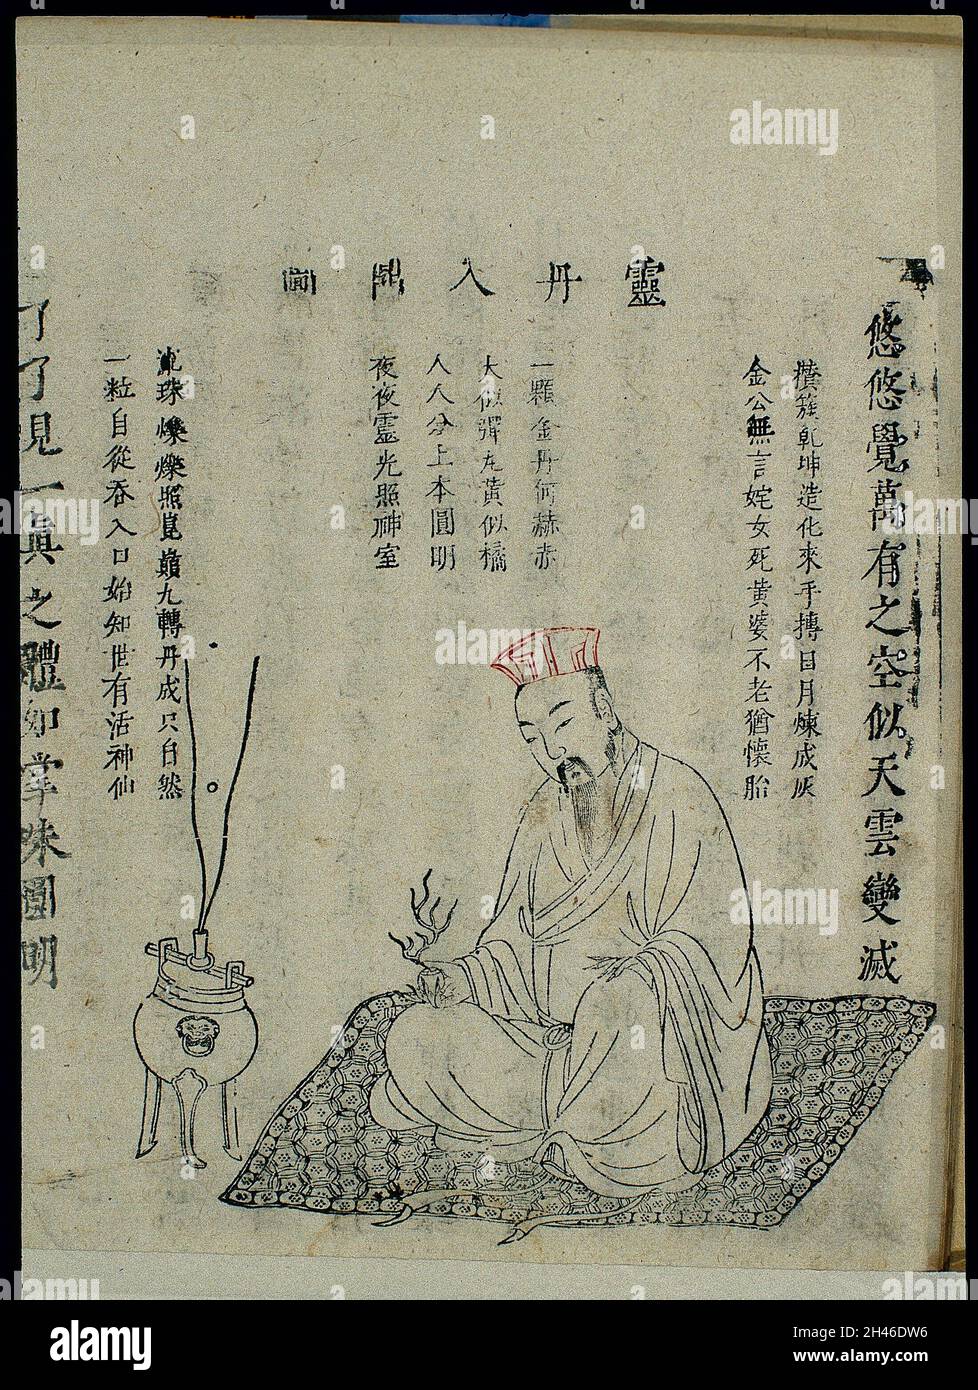 靈丹入鼎圖
悠悠覺萬有之空似天雲變滅
攢簇乾坤造化來手摶日月煉成灰
金公無言姹女死黄婆不老猶懷胎
一顆金丹何赫赤
大似彈丸黄似橘
人人分上本圓明
夜夜靈光照神室
流珠爍爍照崑巔九轉丹成只自然
一粒自從吞入口始知世有活神仙
了了見一真之體如掌珠圓明
alamy
alamy
Image ID: 2H46DW6
www.alamy.com